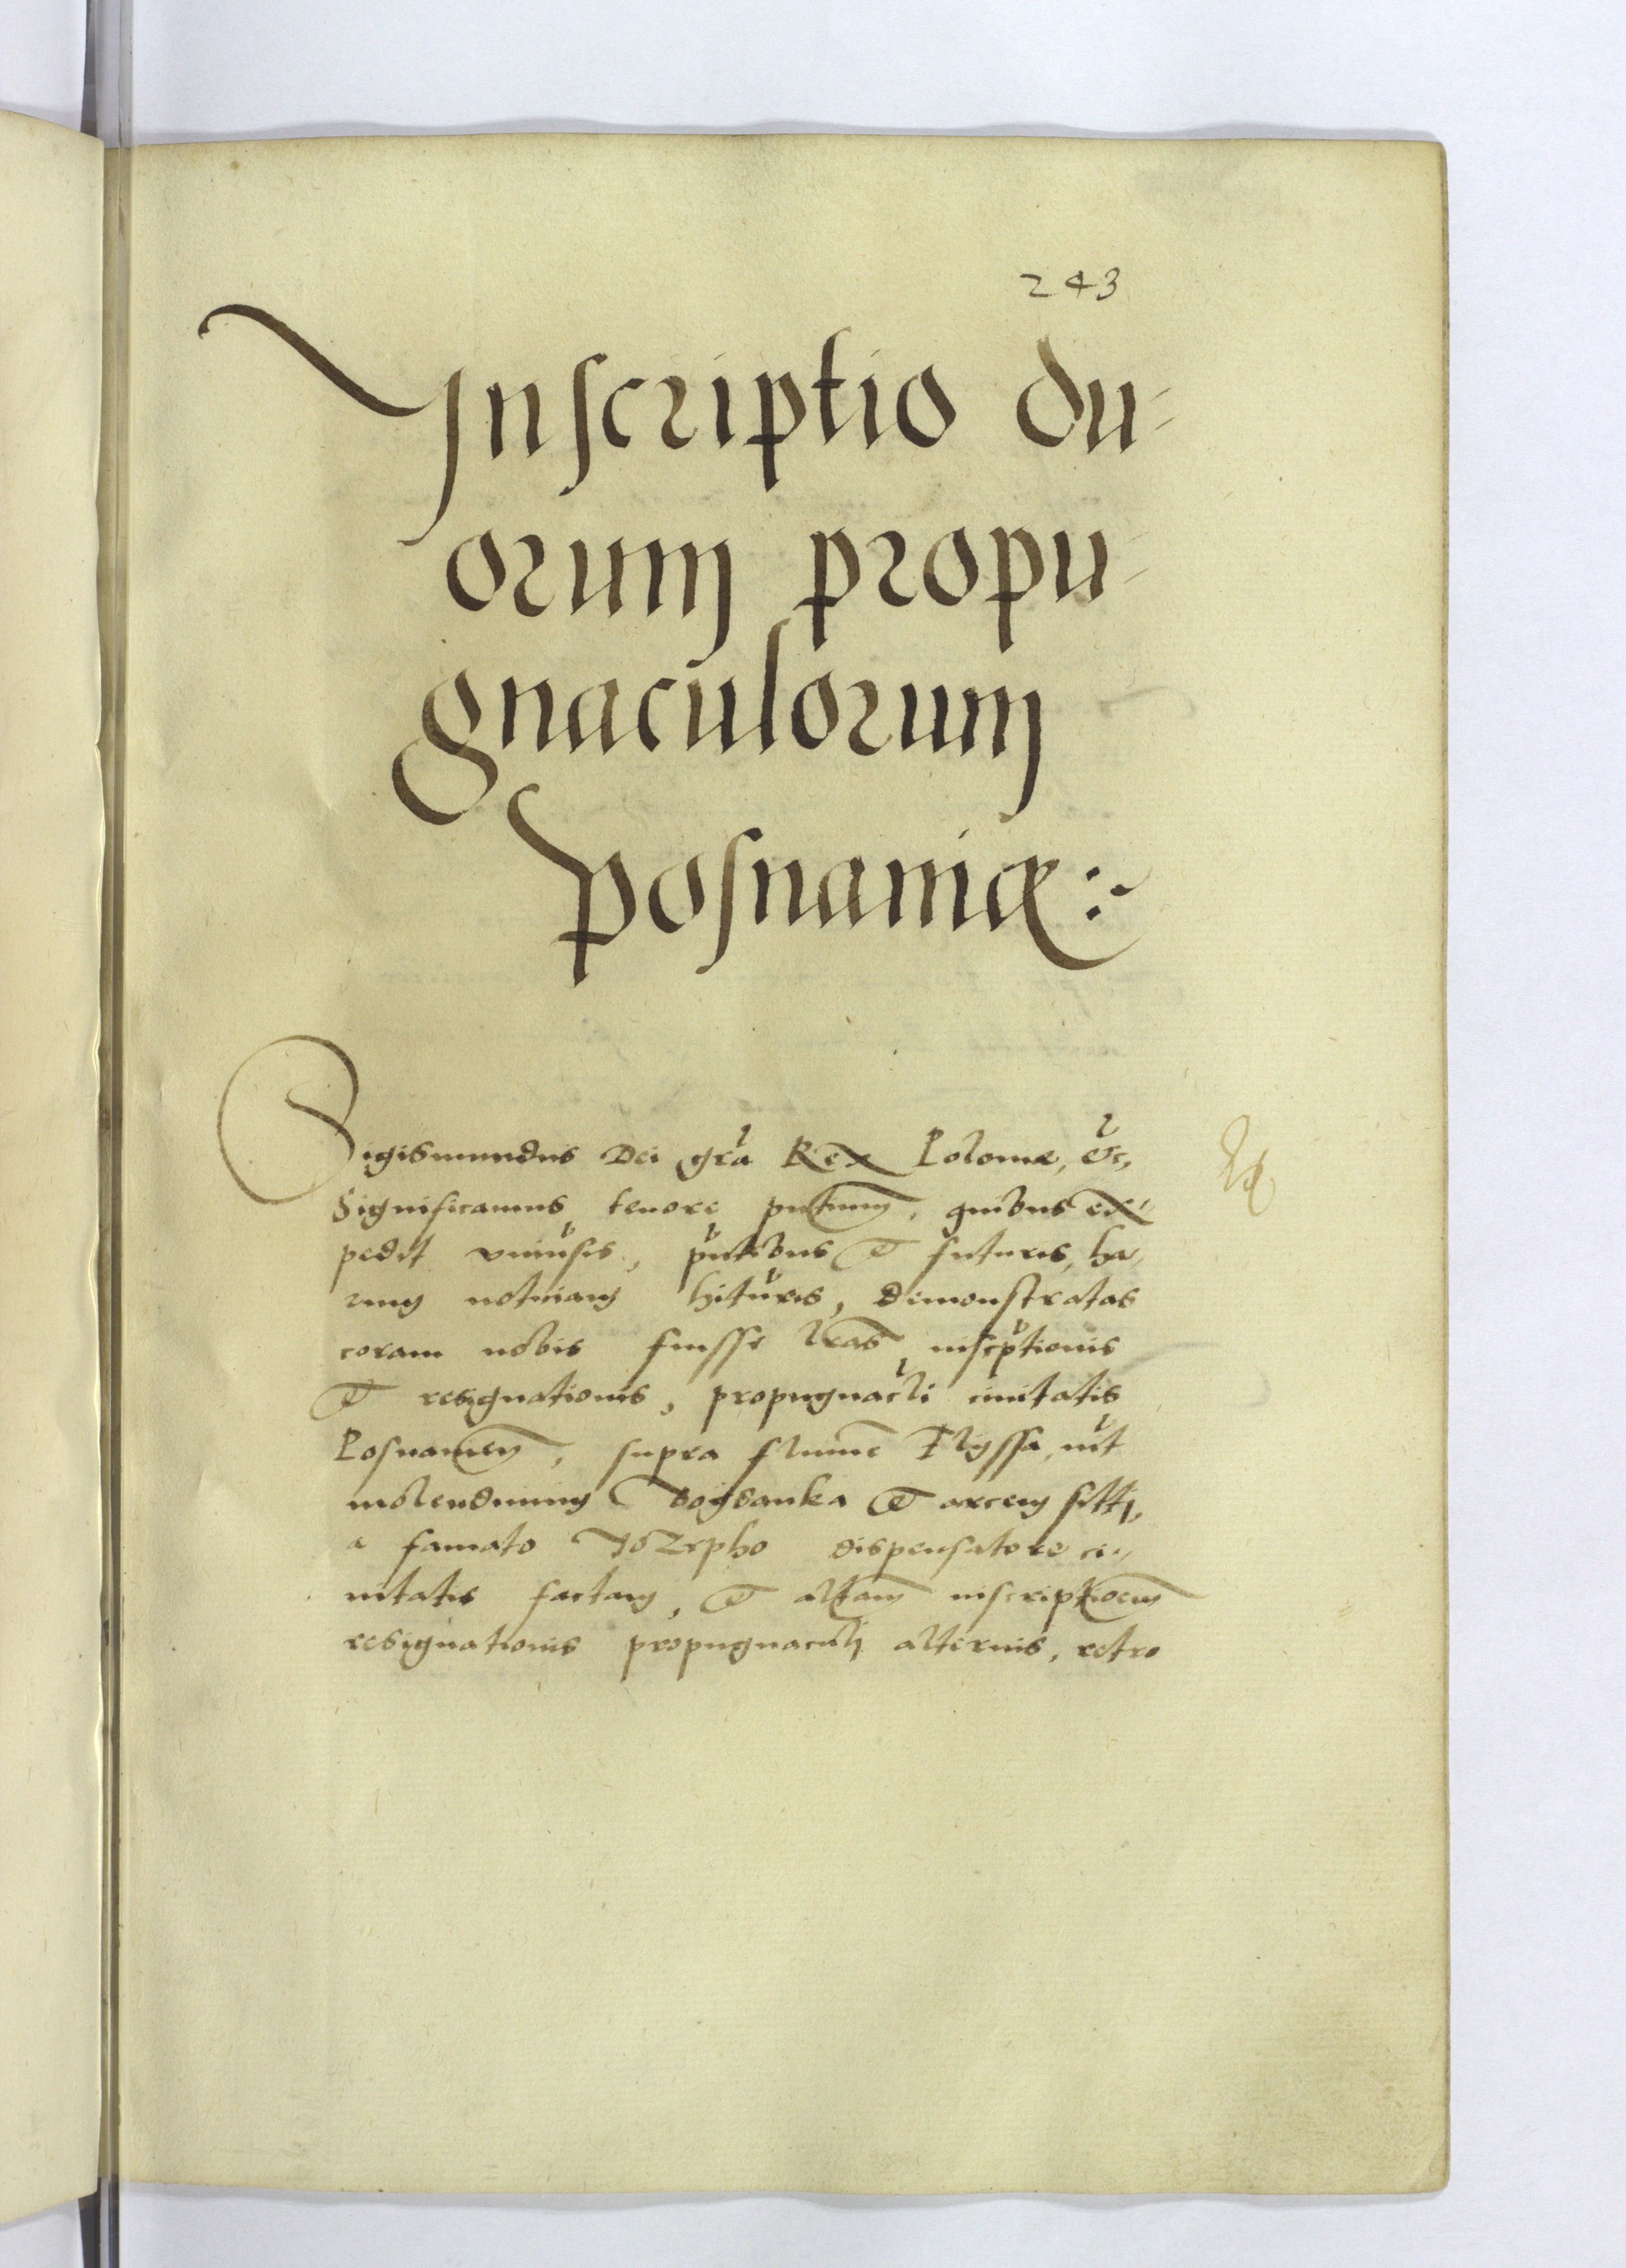 243
Inscriptio du-
orum propu-
gnaculorum
Posnaniæ:~
Sigismundus Dei gra Rex Poloniæ, &c,
Significamus tenore pntium, quibus ex-
pedit vniusis, pntibus et futuris, ha,
rum noticiam hituris, demonstratas
coram nobis fuisse lras inscptionis
et resignationis, propugnacli ciuitatis
Posnanien, supra flume Flyssa, int
molendinum Bogdanka et arcem sitti,
a famato Jozepho dispensatore ci-
uitatis factam, et altam inscriptioem
resignationis propugnaculi alterius, retro